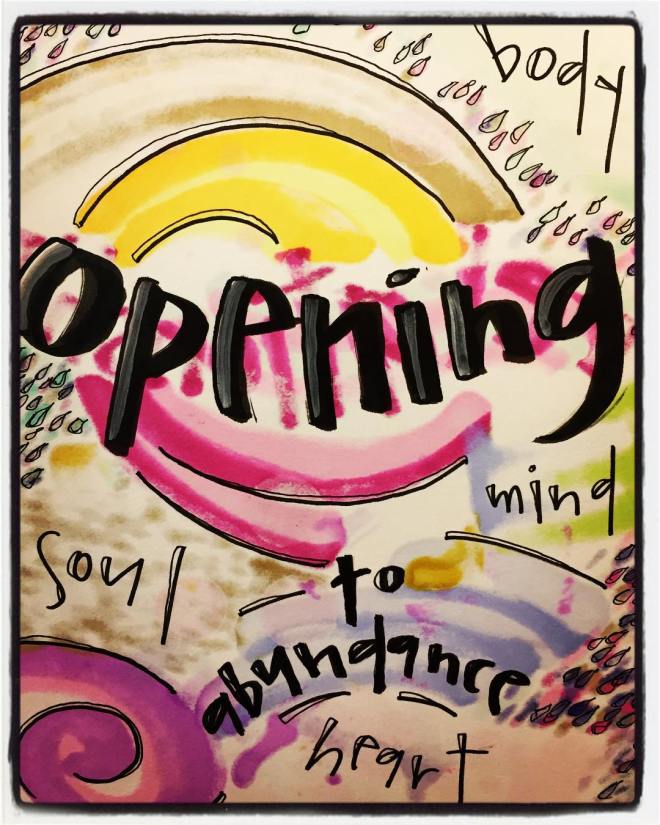 body
opening
mind
soul
to
abundance
heart